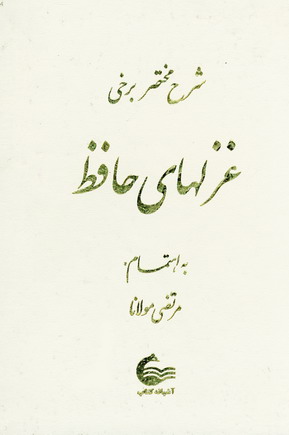 شرح مختصر برخی
غزلهای حافظ
به اهتمام:
مرتضی مولانا
آشیانه کتاب